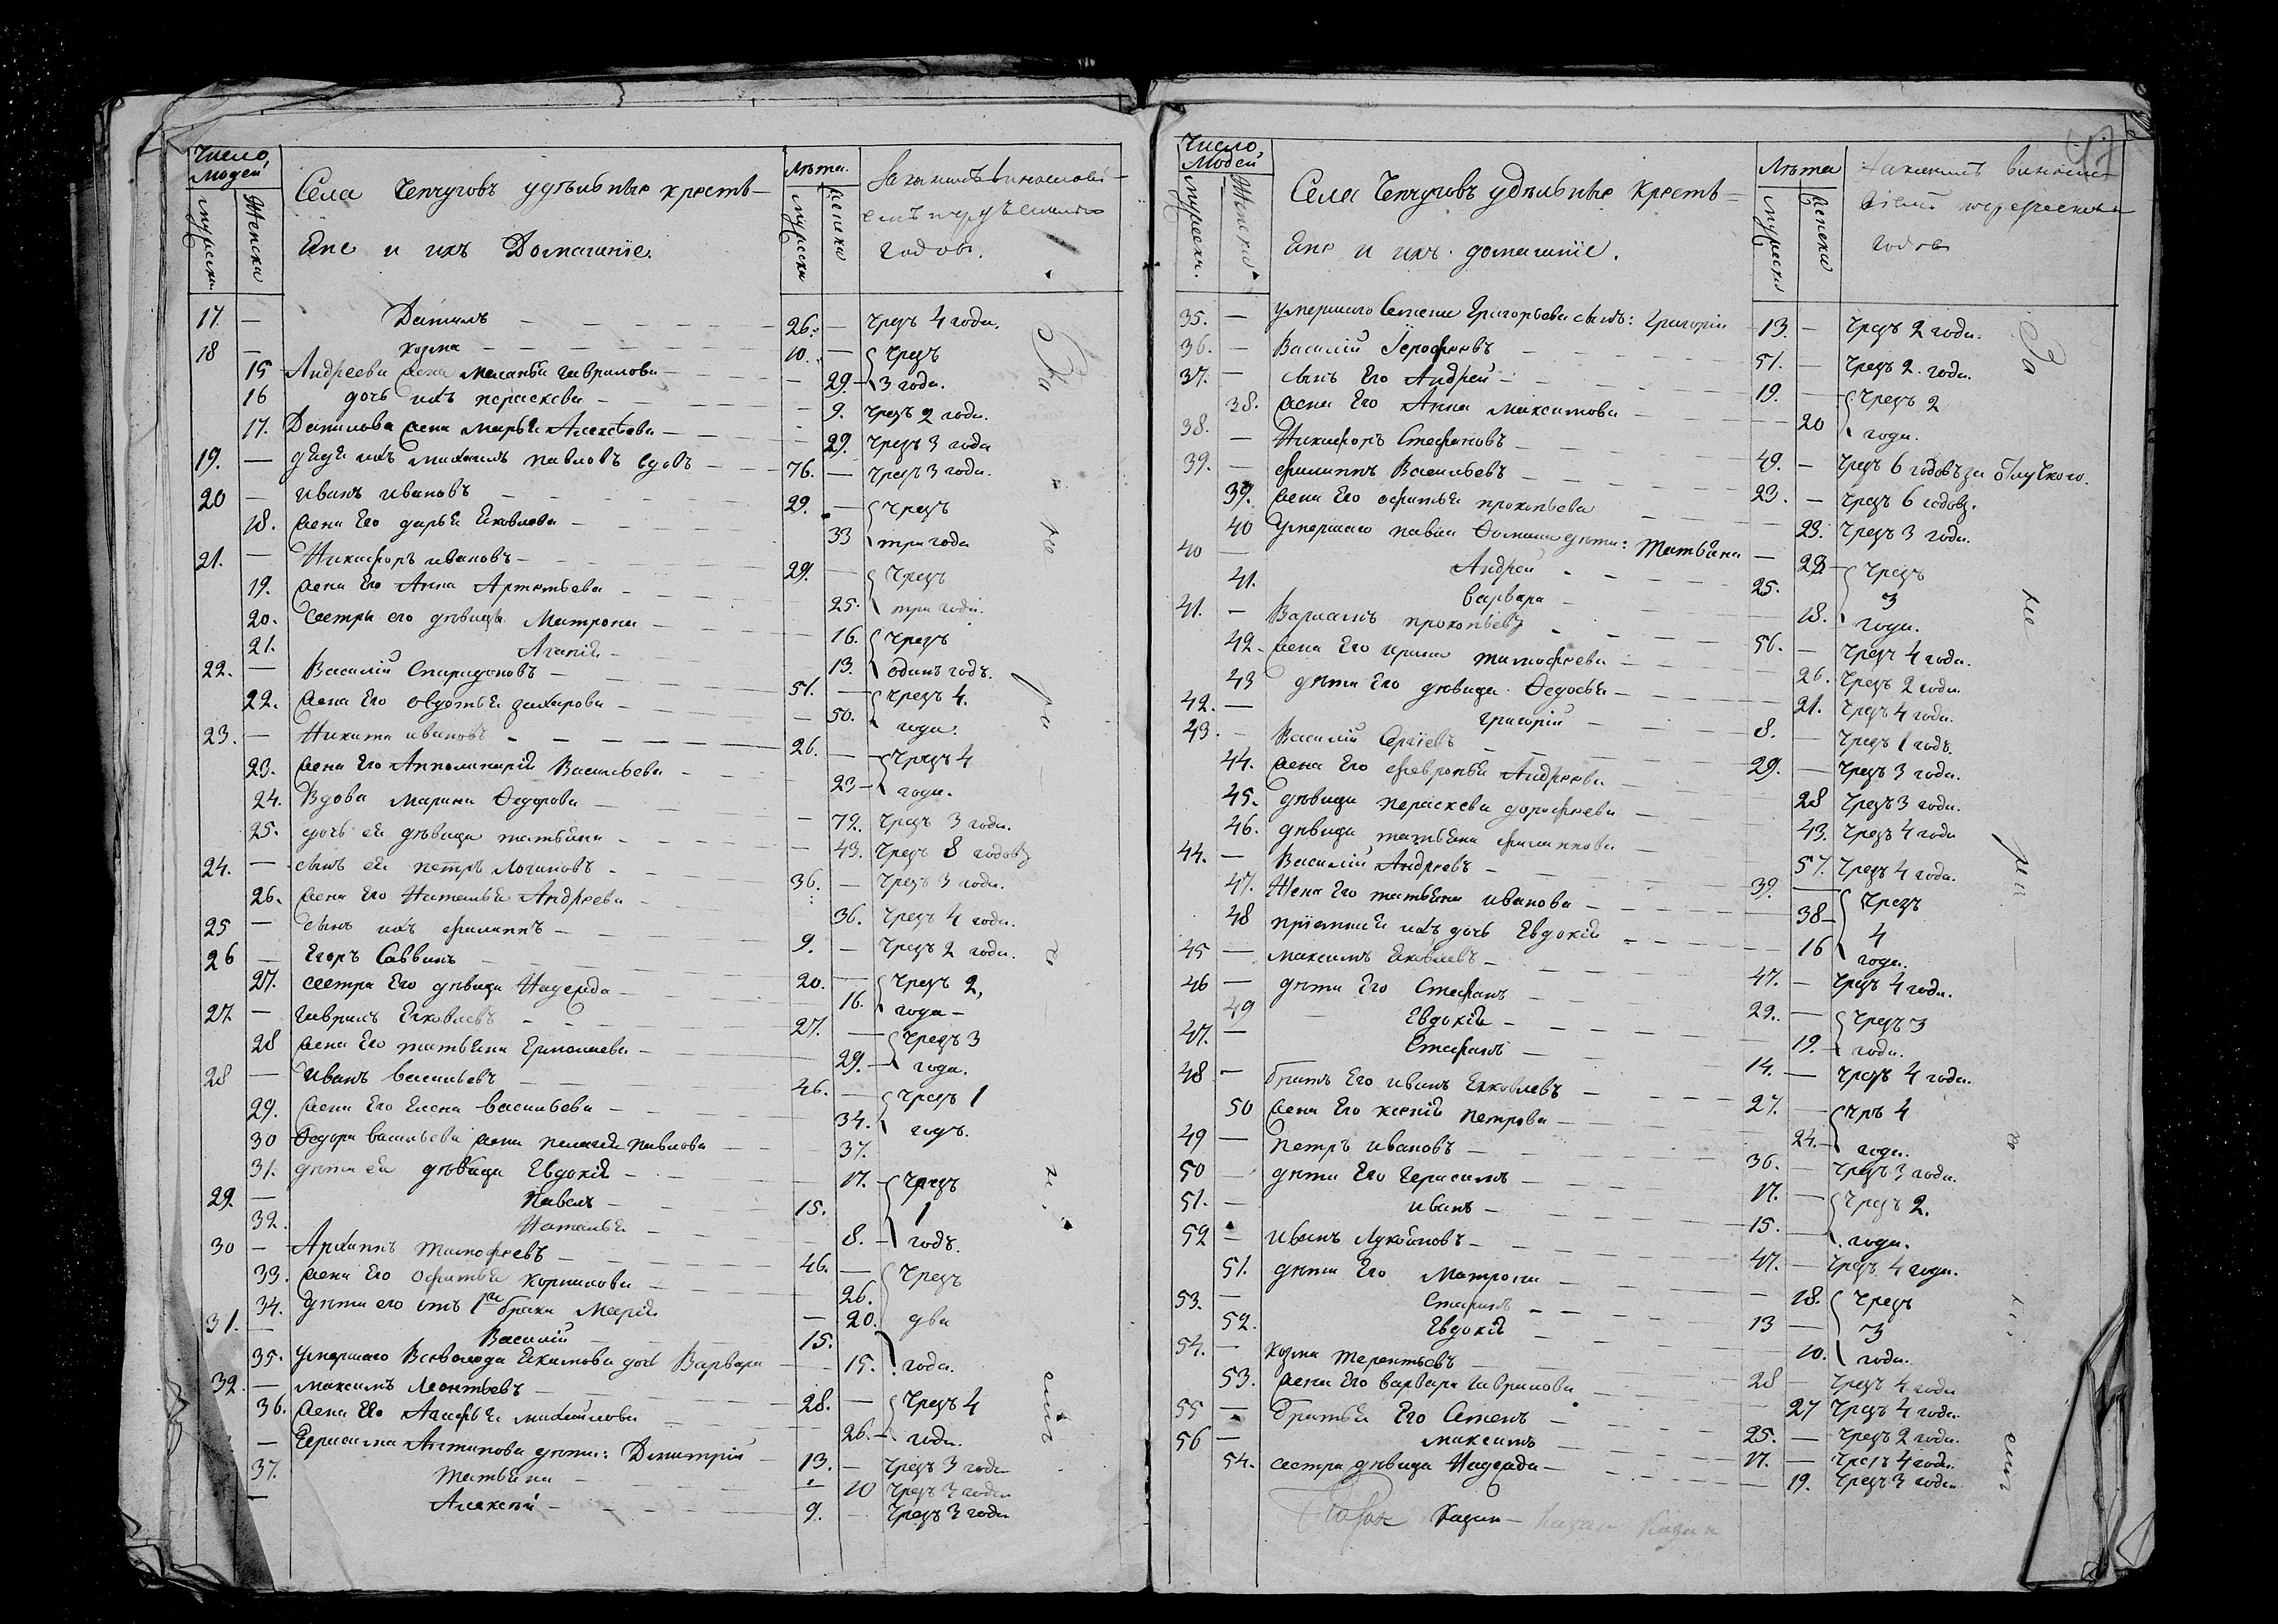 Число Людей
мужеска
Женска
Села Чепчуговъ удѣльные крестья-
яне и ихъ Домашніе.
Лѣта.
мужеска
женска
годовъ.
17. — Данилъ — 26. — Чрезъ 4 года.
18 — Козма — 10. — Чрезъ
15 Андреева жена Меланья Гаврилова — 29. 3 года.
16 дочь ихъ Параскева — 9. Чрезъ 2 года.
17. Данилова жена Марья Алексѣева — 29. Чрезъ 3 года
19. — дядя ихъ Михаилъ Павловъ вдовъ — 76. — Чрезъ 3 года.
20 — Иванъ Ивановъ — 29. — Чрезъ
18. жена Его Дарья Яковлева — 33 три года
21. — Никифоръ Ивановъ — 29. — Чрезъ
19. жена Его Анна Артемьева — 25. три года.
20. Сестры его дѣвицы Матрона — 16. Чрезъ
21. Агапія — 13. одинъ годъ.
22. — Василій Спиридоновъ — 51. — Чрезъ 4.
22. жена Его Овдотья Захарова — 50. года.
23. — Никита Ивановъ — 26. — Чрезъ 4
23. жена Его Апполинарія Васильева — 23 года.
24. Вдова Марина Ѳедорова — 72. Чрезъ 3 года.
25. дочь ея дѣвица Татьяна — 43. Чрезъ 8 годовъ
24. — сынъ ея Петръ Логиновъ — 36. — Чрезъ 3 года.
26. жена Его Наталья Андреева — 36. Чрезъ 4 года.
25 — сынъ ихъ Филиппъ — 9. — Чрезъ 2 года.
26 — Егоръ Саввинъ — 20. — Чрезъ 2,
27. сестра Его дѣвица Надежда — 16. года —
27. — Гаврилъ Яковлевъ — 27. — Чрезъ 3
28 жена Его Татьяна Ермолаева — 29. года.
28 — Иванъ Васильевъ — 46. — Чрезъ 1
29. жена Его Елена Васильева — 34. годъ.
30 Ѳедора Васильева жена Пелагея Павлова — 37.
31. дѣти ея дѣвица Евдокія — 17. Чрезъ
29. — Павелъ — 15. 1
32. Наталья — 8. годъ.
30 — Архиппъ Тимофеевъ — 46. — Чрезъ
33. жена Его Офимья Корнилова — 26.
34. дѣти его отъ 1го брака Марія — 20. два
31. — Василій — 15.
35. умершаго Всеволода Якимова дочь Варвара — 15. года.
32. — Максимъ Леонтьевъ — 28. — Чрезъ 4
36. жена Его Агафья Михайлова — 26. года.
— Герасима Антипова дѣти: Димитрій — 13. — Чрезъ 3 года
37. Татьяна — 10 Чрезъ 3 года
— Алексѣй — 9. — Чрезъ 3 года
За не при че ніемъ
Число Людей
мужеска.
Женска
Села Чепчуговъ удѣльные крестья-
яне и ихъ домашніе.
Лѣта
мужеска
женска
годовъ
47
35. — умершаго Семена Григорьева сынъ: Григорій — 13. — Чрезъ 2 года.
36. — Василій Іерофеевъ — 51. — Чрезъ 2 года.
37. — сынъ Его Андрей — 19. — Чрезъ 2
38. жена Его Анна Максимова — 20 года.
38. — Никифоръ Стефановъ — 49. — Чрезъ 6 годовъ за отлучкою.
39. — Филиппъ Васильевъ — 23. — Чрезъ 6 годовъ.
39. жена Его Офимья Прокопьева — 23. Чрезъ 3 года.
40 умершаго Павла Ѳомина дѣти: Татьяна — 22 Чрезъ
40 — Андрей — 25. 3
41. Варвара — 18. года.
41. — Варламъ Прокопьевъ — 56. — Чрезъ 4 года.
42. жена Его Ирина Тимофеева — 26. Чрезъ 2 года.
43 дѣти Его дѣвица Ѳедосья — 21. Чрезъ 4 года.
42. — Григорій — 8. — Чрезъ 1 годъ.
43. — Василій Сергіевъ — 29. — Чрезъ 3 года.
44. жена Его Февронья Андреева — 28 Чрезъ 3 года.
45. дѣвица Параскева Дорофеева — 43. Чрезъ 4 года
46. дѣвица Татьяна Филиппова — 57. Чрезъ 4 года.
44. — Василій Андреевъ — 39. — Чрезъ
47. Жена Его Татьяна Иванова — 38 4
48 пріемная ихъ дочь Евдокія — 16 года.
45 — Максимъ Яковлевъ — 47. — Чрезъ 4 года.
46 — дѣти Его Стефанъ — 22. — Чрезъ 3
49 Евдокія — 19. года.
47. — Стефанъ — 14. — Чрезъ 4 года.
48. — братъ Его Иванъ Яковлевъ — 27. — Чрезъ 4
50 жена Его Ксенія Петрова — 24. года.
49 — Петръ Ивановъ — 36. — Чрезъ 3 года.
50 — дѣти Его Герасимъ — 17. — Чрезъ 2.
51. — Иванъ — 15. — года.
52 — Иванъ Лукояновъ — 47. — Чрезъ 4 года.
51. дѣти Его Матрона — 18. Чрезъ
53. — Стефанъ — 13 — 3
52. Евдокія — 10. года.
54. — Козма Терентьевъ — 28 — Чрезъ 4 года
53. жена Его Варвара Гаврилова — 27 Чрезъ 4 года.
55 — Братья Его Семенъ — 25. — Чрезъ 2 года.
56 — Максимъ — 17. — Чрезъ 4 года.
54. сестра дѣвица Надежда — 19. Чрезъ 3 года.
Казан
За не